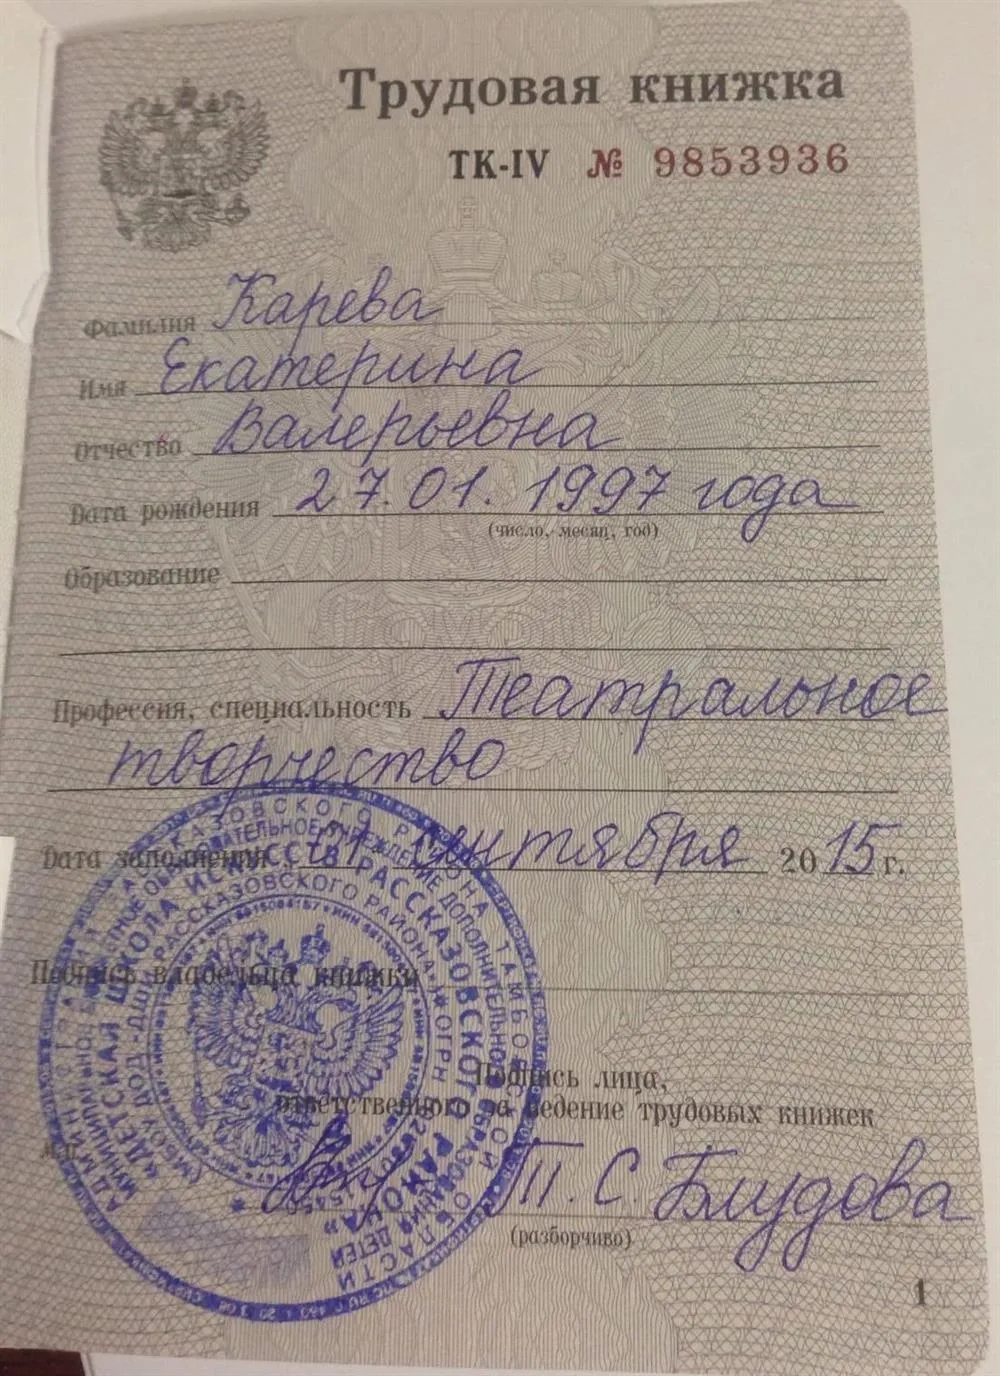 Трудовая книжка
ТК-IV № 9853936
Фамилия Карева
Имя Екатерина
Отчество Валерьевна
Дата рождения 27.01.1997 года
(число, месяц, год)
Образование
Профессия, специальность Театральное
творчество
Дата заполнения 01 сентября 2015 г.
Подпись владельца книжки
Подпись лица,
ответственного за ведение трудовых книжек
М.П.
Т.С. Блудова
(разборчиво)
«ДЕТСКАЯ ШКОЛА ИСКУССТВ РАССКАЗОВСКОГО РАЙОНА»
1